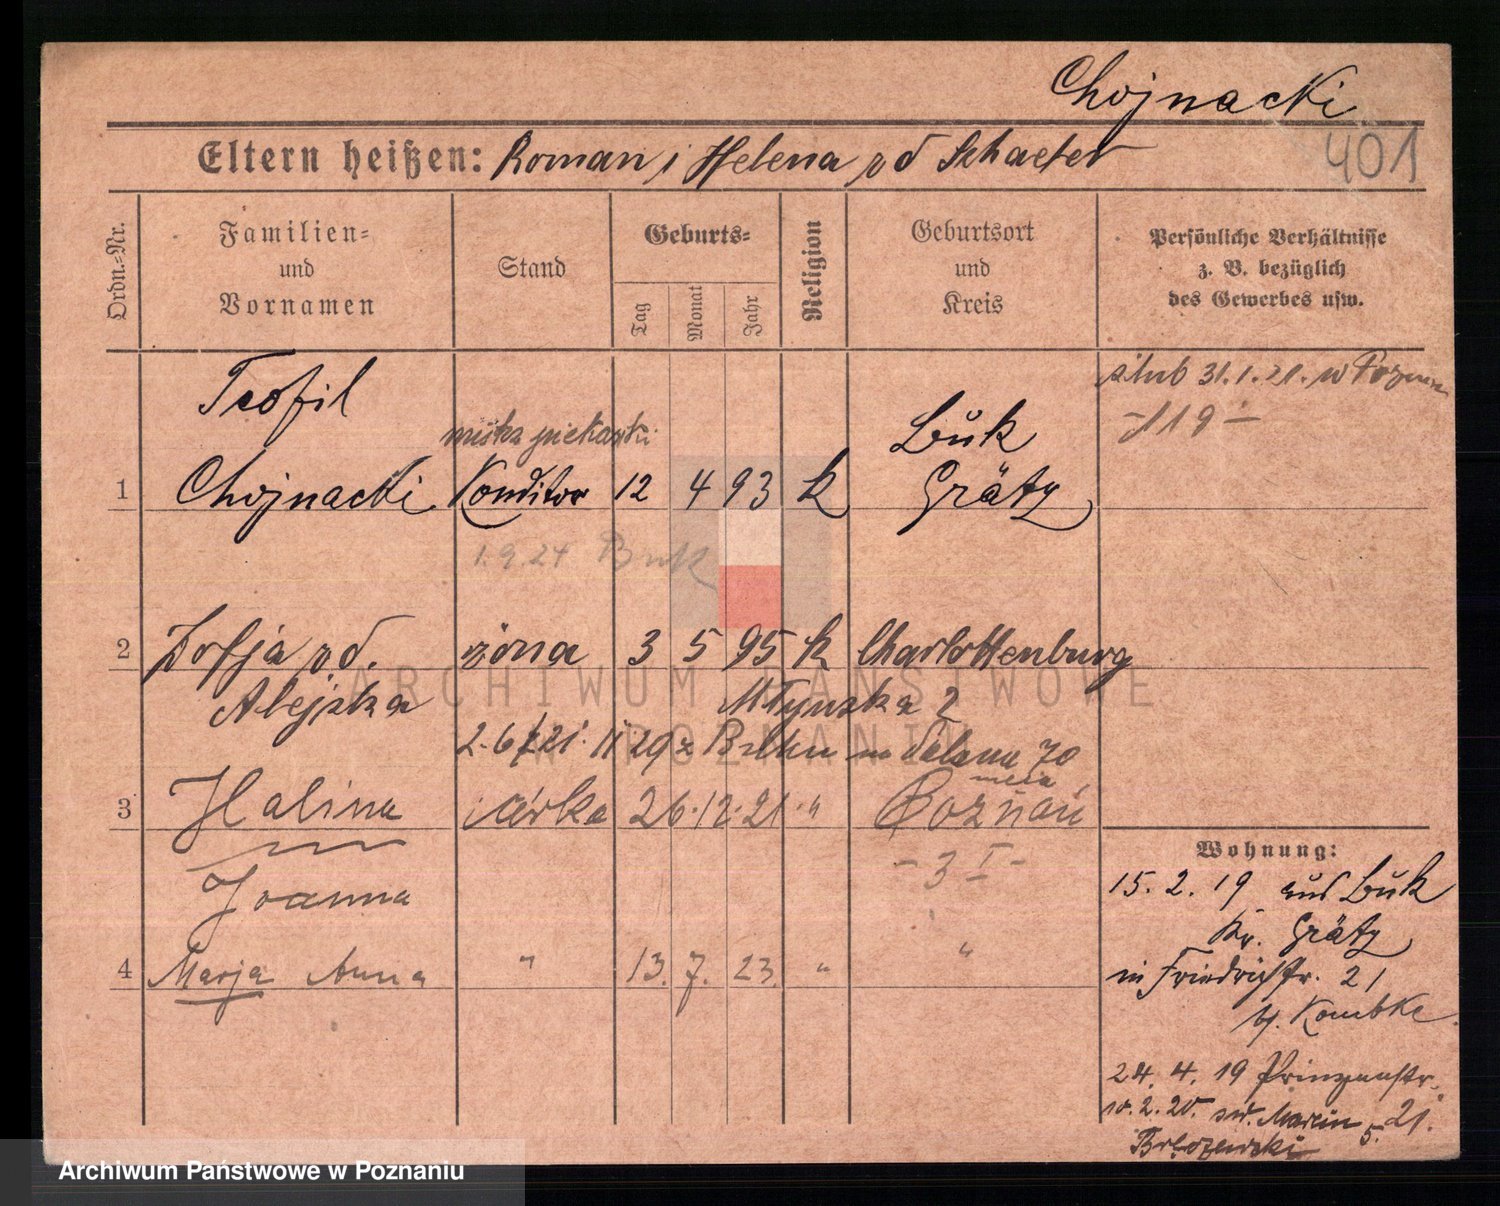 Chojnacki
Eltern heißen: Roman i Helena zd Schaefer
401
Ordn.-Nr.
Familien-
und
Vornamen
Stand
Geburts-
Tag
Monat
Jahr
Religion
Geburtsort
und
Kreis
Persönliche Verhältnisse
z. B. bezüglich
des Gewerbes usw.
ślub 31.1.21. w Poznan
Teofil
piekarski
Buk
1 Chojnacki Konditor 12 4 93 k Grätz
1.9.24 Buk
2 Zofja zd. żona 3 5 95 k Charlottenburg
Młyńska 2
3 Halina córka 26.12.21 " Poznań
Joanna
4 Marja Anna " 13. 7. 23. " "
Wohnung:
15. 2. 19 aus Buk
Kr. Grätz
in Friedrichstr. 21
24. 4. 19 Prinzenstr.
10.2.20. św. Marcin 21.
ARCHIWUM PAŃSTWOWE
W POZNANIU
Archiwum Państwowe w Poznaniu